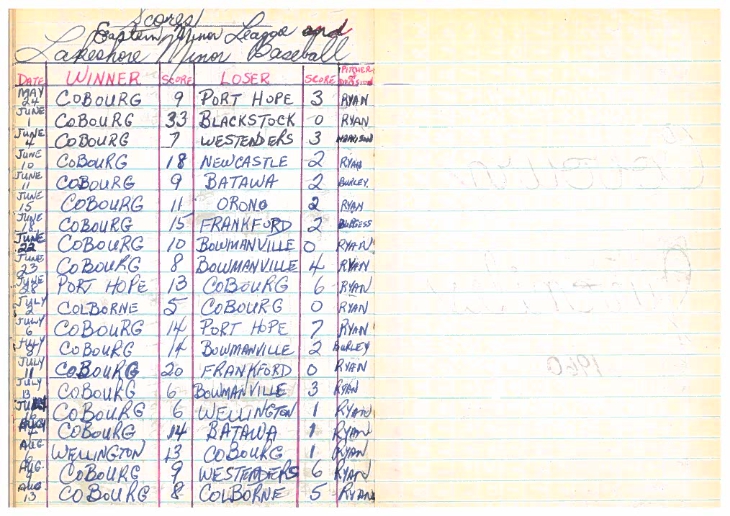 Scores!
Eastern Minor League and
Lakeshore Minor Baseball
DATE WINNER SCORE LOSER SCORE PITCHER
MAY 24 COBOURG 9 PORT HOPE 3 RYAN
JUNE 1 COBOURG 33 BLACKSTOCK 0 RYAN
JUNE 4 COBOURG 7 WESTENDERS 3
JUNE 10 COBOURG 18 NEWCASTLE 2 RYAN
JUNE 11 COBOURG 9 BATAWA 2 BURLEY
JUNE 15 COBOURG 11 ORONO 2 RYAN
JUNE 18 COBOURG 15 FRANKFORD 2 BURGESS
JUNE 22 COBOURG 10 BOWMANVILLE 0 RYAN
JUNE 23 COBOURG 8 BOWMANVILLE 4 RYAN
JUNE 28 PORT HOPE 13 COBOURG 6 RYAN
JULY 2 COLBORNE 5 COBOURG 0 RYAN
JULY 6 COBOURG 14 PORT HOPE 7 RYAN
JULY COBOURG 14 BOWMANVILLE 2 BURLEY
JULY 11 COBOURG 20 FRANKFORD 0 RYAN
JULY 13 COBOURG 6 BOWMANVILLE 3 RYAN
JULY 16 COBOURG 6 WELLINGTON 1 RYAN
AUG 4 COBOURG 14 BATAWA 1 RYAN
AUG 6 WELLINGTON 13 COBOURG 1 RYAN
AUG. COBOURG 9 WESTENDERS 6 RYAN
AUG 13 COBOURG 8 COLBORNE 5 RYAN
1960